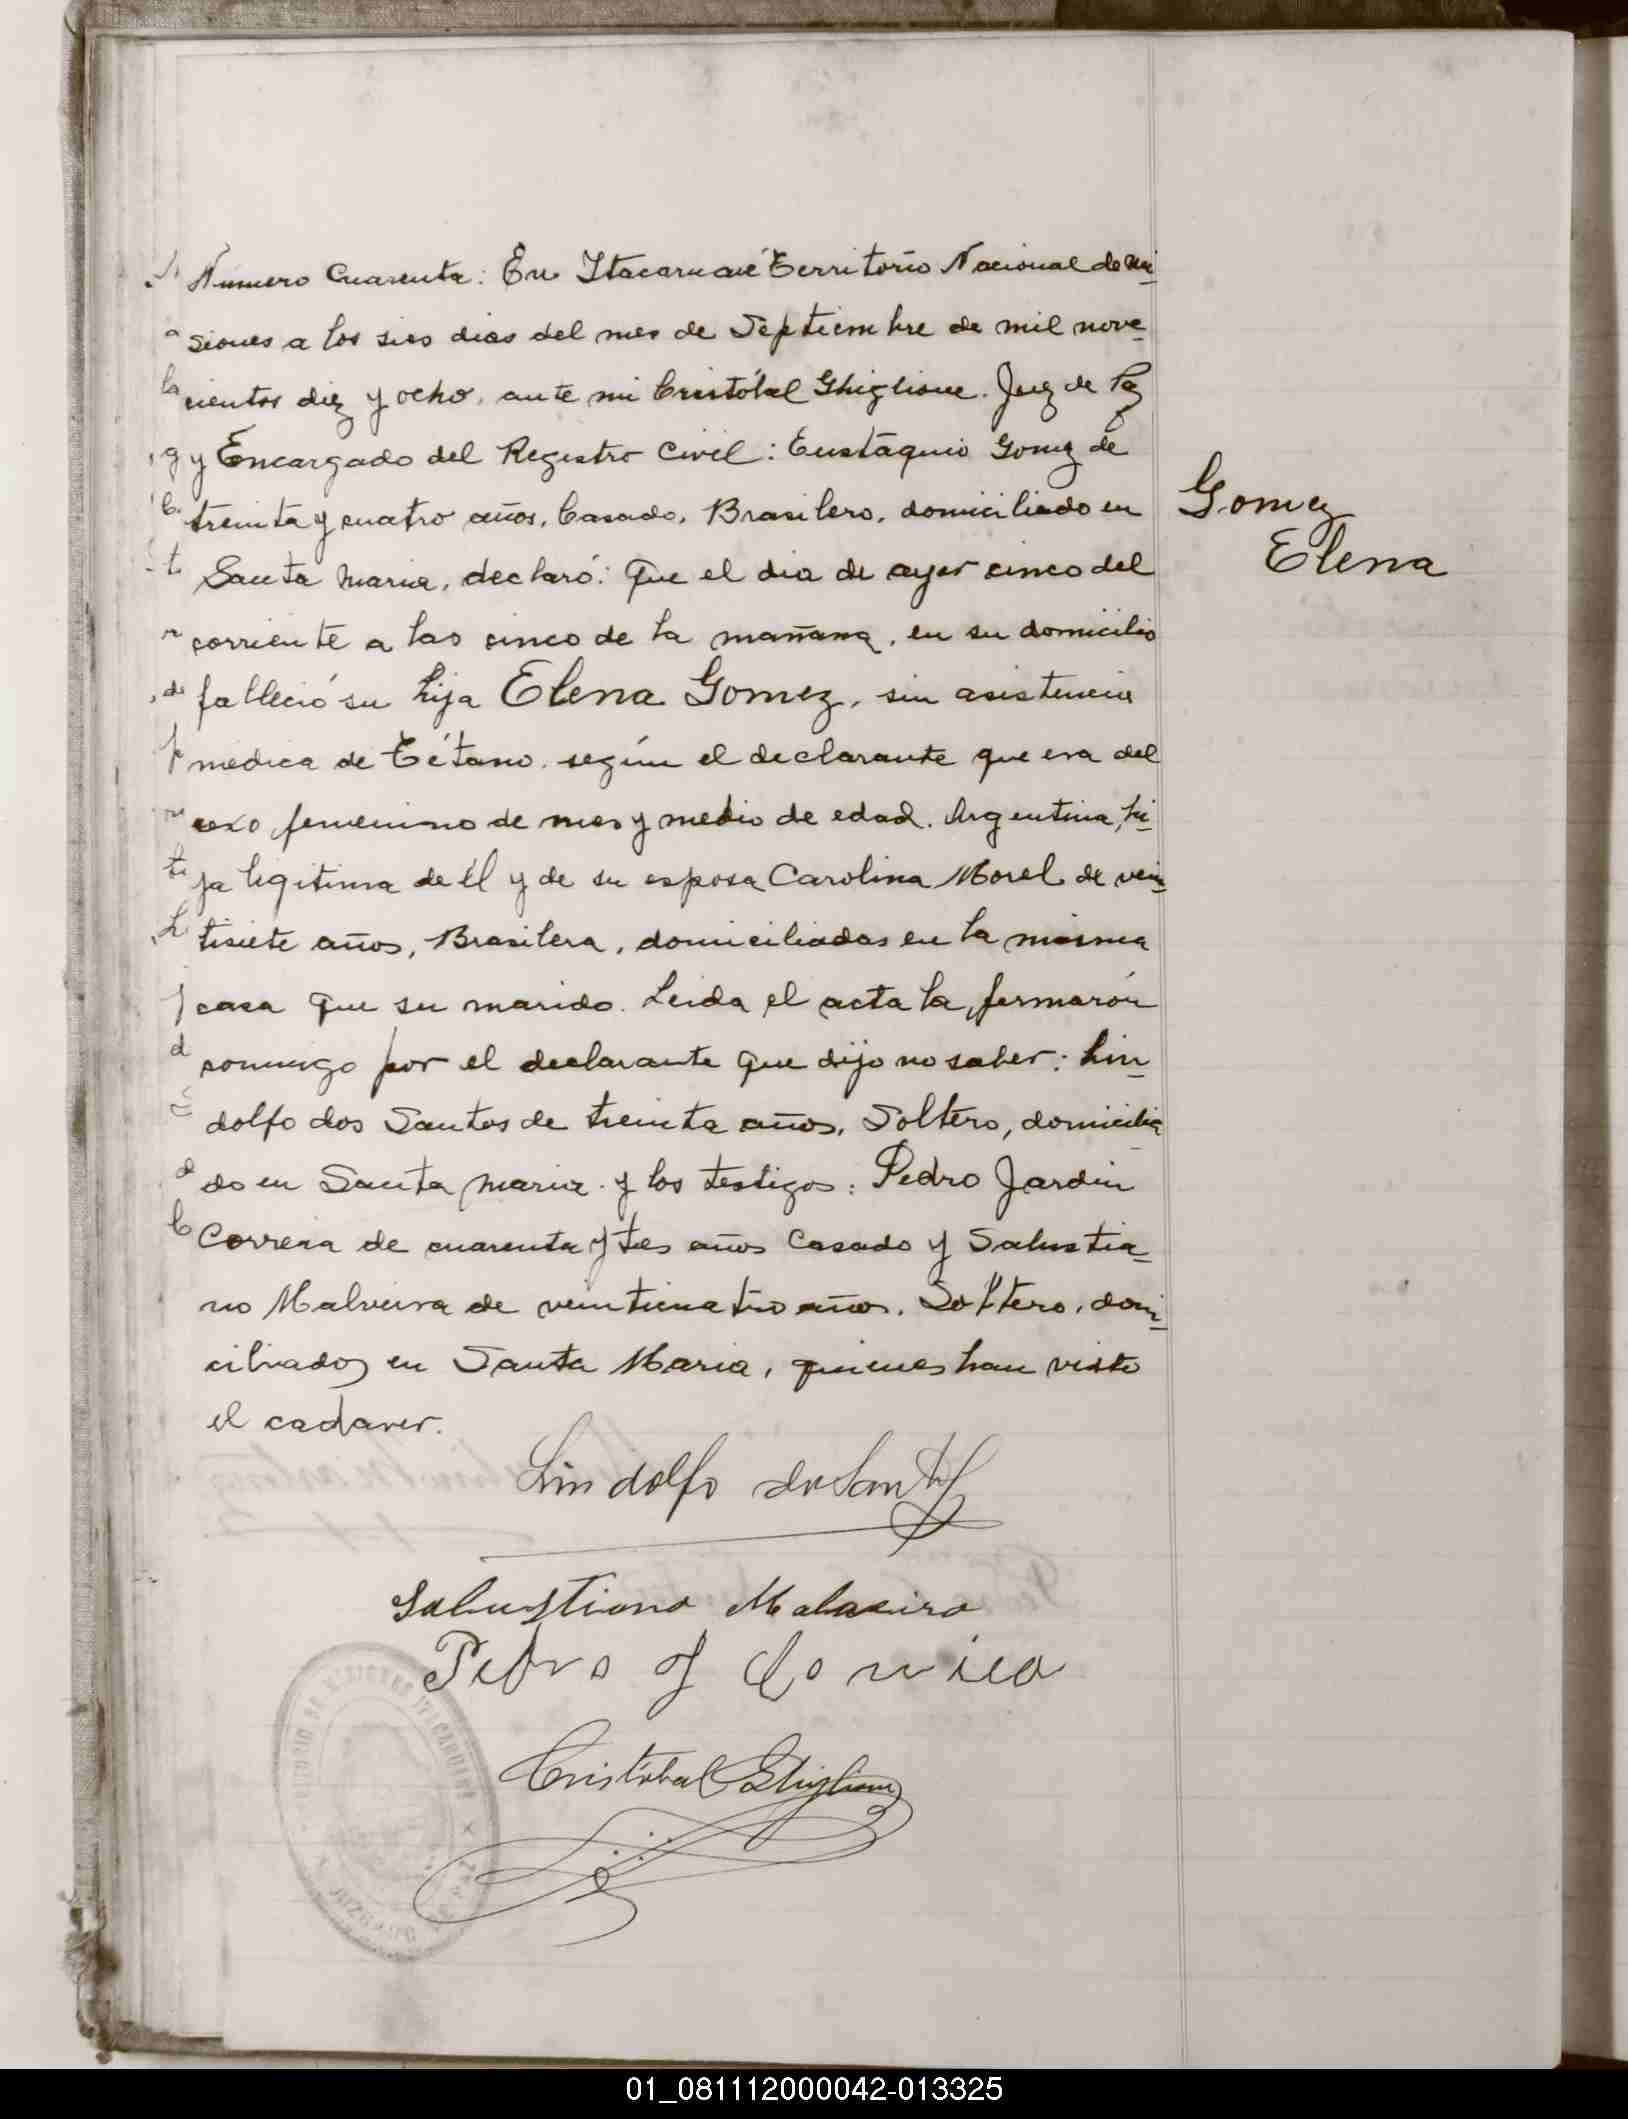 Número Cuarenta: En Itacaruaré Territorio Nacional de Mi-
siones a los seis dias del mes de Septiembre de mil nove-
cientos diez y ocho, ante mi Cristóbal Ghiglione. Juez de Paz
y Encargado del Registro Civil: Eustaquio Gomez de
treinta y cuatro años, Casado, Brasilero, domiciliado en
Gomez
Elena
Santa Maria, declaró: Que el dia de ayer cinco del
corriente a las cinco de la mañana, en su domicilio
falleció su hija Elena Gomez, sin asistencia
medica de Tétano, según el declarante que era del
sexo femenino de mes y medio de edad. Argentina, hi-
ja legitima de él y de su esposa Carolina Morel de vein-
tisiete años, Brasilera, domiciliadas en la misma
casa que su marido. Leida el acta la firmarón
conmigo por el declarante que dijo no saber: Lin-
dolfo dos Santos de treinta años, Soltero, domicilia
do en Santa Maria y los testigos: Pedro Jardin
Correa de cuarenta y tres años Casado y Salustia-
no Malveira de veinticuatro años. Soltero, domi-
ciliados en Santa Maria, quienes han visto
el cadaver.
Lindolfo
Salustiano
Pedro J
Cristóbal Ghiglione
01_081112000042-013325